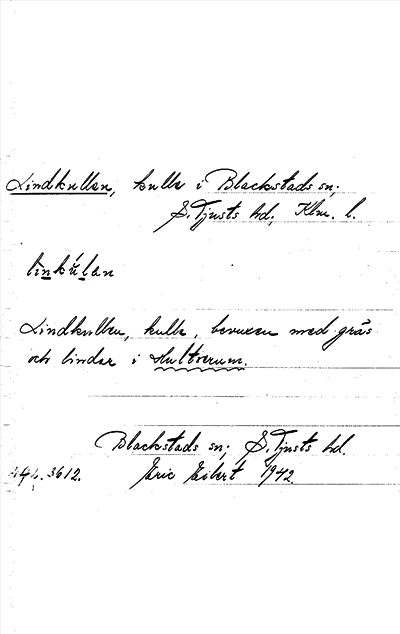 Lindkullen, kulle i Blackstads sn;
S. Tjusts hd; Klm. l.
Lindkullen, kulle, bevuxen med gräs
och lindar i Hultserum.
Blackstads sn; S. Tjusts hd.
3612. Eric Eibert 1942